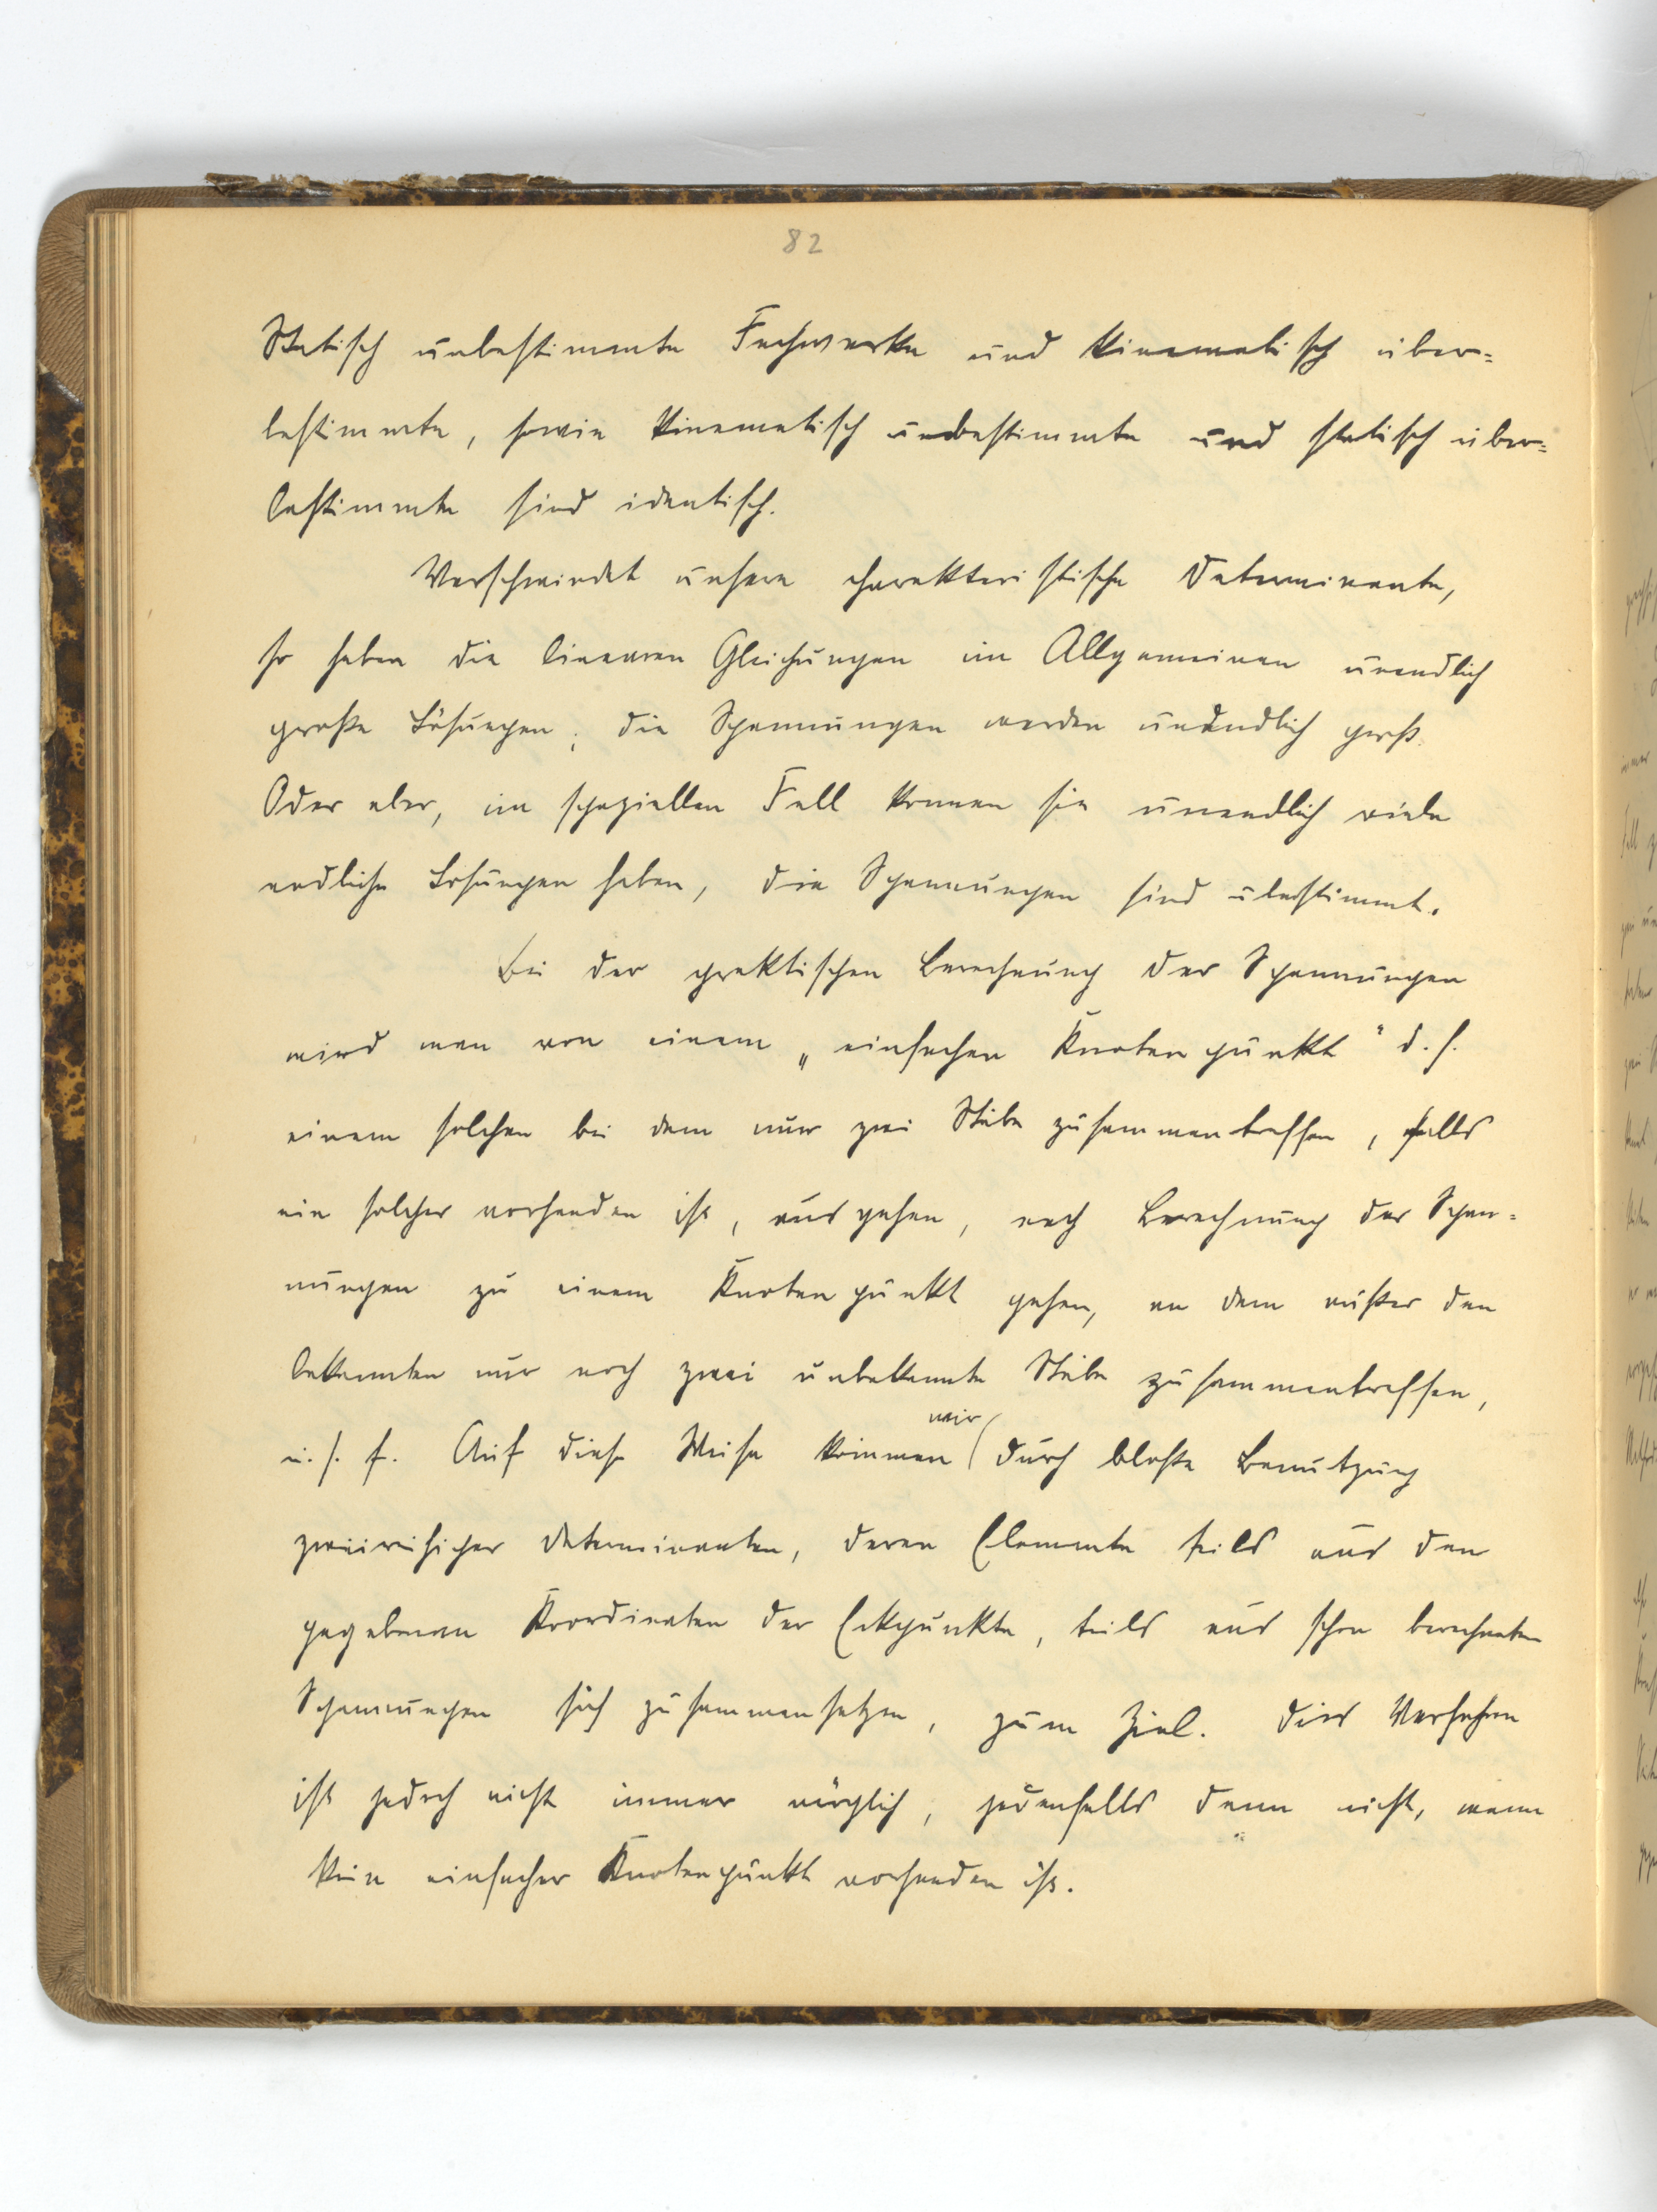 82
Statisch unbestimmte Fachwerke und kinematisch über=
bestimmte, sowie kinematisch unbestimmte und statisch über=
bestimmte sind identisch.
Verschwindet unsere charakteristische Determinante,
so haben die linearen Gleichungen im Allgemeinen unendlich
große Lösungen; die Spannungen werden unendlich groß.
Oder aber, im speziellen Fall können sie unendlich viele
endliche Lösungen haben, die Spannungen sind ubestimmt.
Bei der praktischen Berechnung der Spannungen
wird man von einem „einfachen Knotenpunkt" d.h.
einem solchen bei dem nur zwei Stäbe zusammentreffen, falls
ein solcher vorhanden ist, ausgehen, nach Berechnung der Span=
nungen zu einem Knotenpunkt gehen, an dem außer den
bekannten nur noch zwei unbekannte Stäbe zusammentreffen,
u.s.f. Auf diese Weise kommen wir durch bloße Benutzung
zweireihiger Determinanten, deren Elemente teils aus den
gegebenen Koordinaten der Eckpunkte, teils aus schon berechneten
Spannungen sich zusammensetzen, zum Ziel. Dies Verfahren
ist jedoch nicht immer möglich, jedenfalls dann nicht, wenn
kein einfacher Knotenpunkt vorhanden ist.